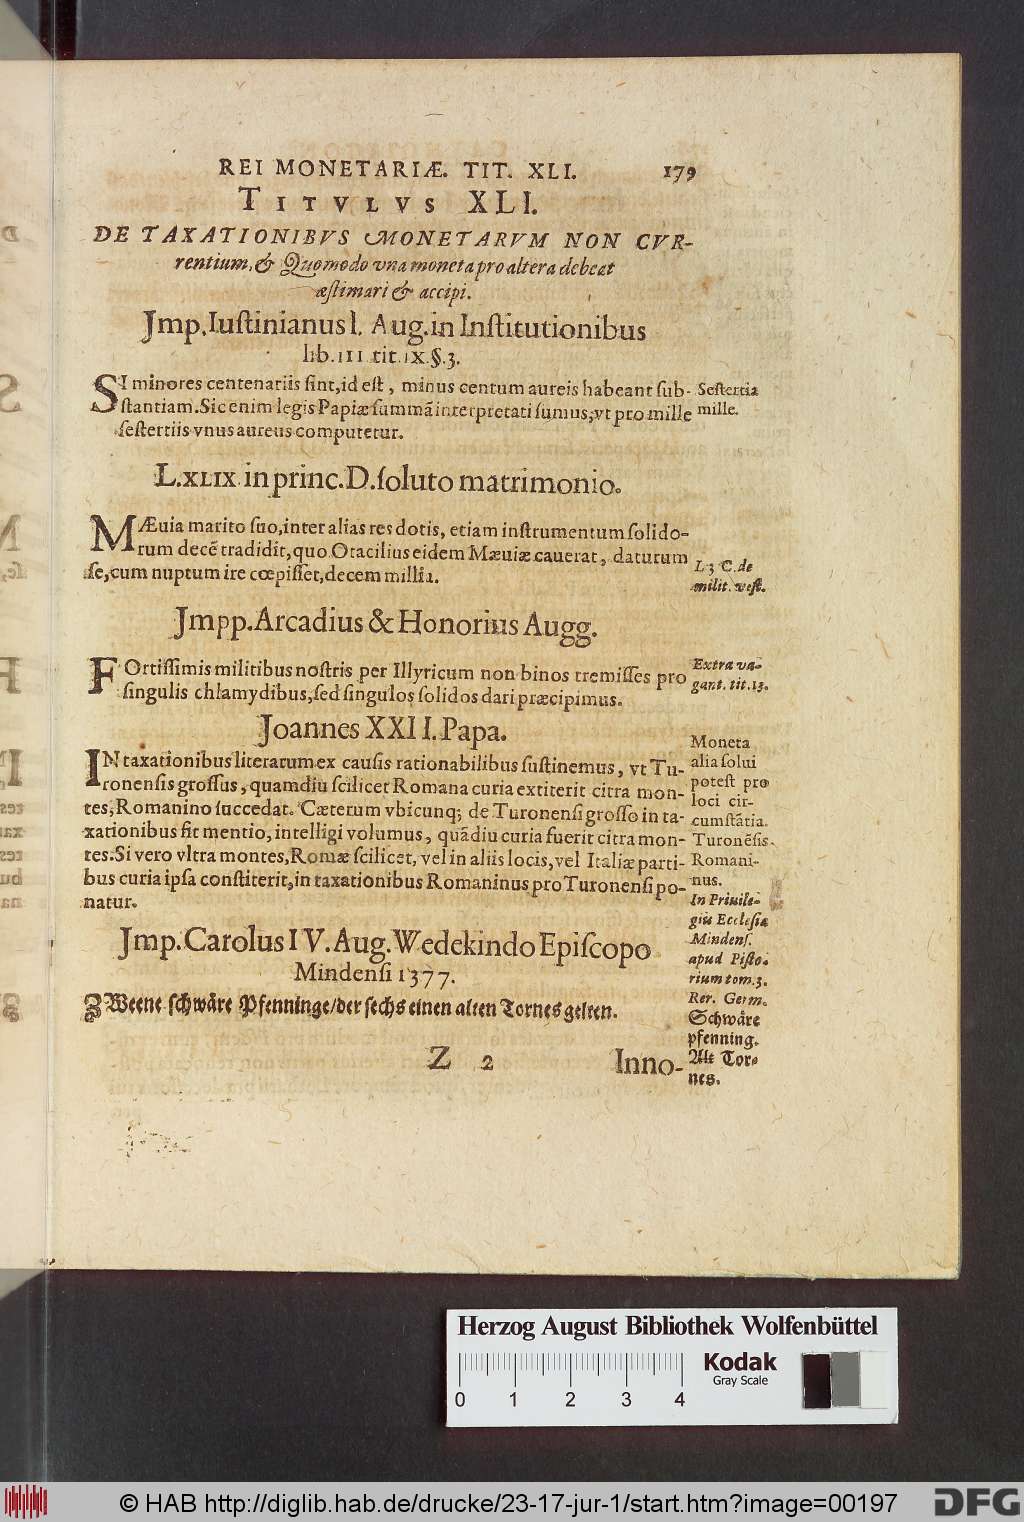 REI MONETARIÆ. TIT. XLI. 179
TITVLVS XLI.
DE TAXATIONIBVS MONETARVM NON CVR-
rentium, & Quomodo vna moneta pro altera debeat
æstimari & accipi.
Imp. Iustinianus I. Aug. in Institutionibus
lib. III tit. IX. §. 3.
SI minores centenariis sint, id est, minus centum aureis habeant sub-
stantiam. Sic enim legis Papiæ summã interpretati sumus, vt pro mille
sestertiis vnus aureus computetur.
Sestertia
mille.
L. XLIX. in princ. D. soluto matrimonio.
MÆuia marito suo, inter alias res dotis, etiam instrumentum solido-
rum decẽ tradidit, quo Otacilius eidem Mæuiæ cauerat, daturum
se, cum nuptum ire cœpisset, decem millia.
L. 3 C. de
milit. vest.
Impp. Arcadius & Honorius Augg.
FOrtissimis militibus nostris per Illyricum non binos tremisses pro
singulis chlamydibus, sed singulos solidos dari præcipimus.
Extra va-
gant. tit. 13.
Joannes XXII. Papa.
IN taxationibus literarum ex causis rationabilibus sustinemus, vt Tu-
ronensis grossus, quamdiu scilicet Romana curia extiterit citra mon-
tes, Romanino succedat. Cæterum vbicunq; de Turonensi grosso in ta-
xationibus fit mentio, intelligi volumus, quãdiu curia fuerit citra mon-
tes. Si vero vltra montes, Romæ scilicet, vel in aliis locis, vel Italiæ parti-
bus curia ipsa constiterit, in taxationibus Romaninus pro Turonensi po-
natur.
Moneta
alia solui
potest pro
loci cir-
cumstãtia.
Turonẽsis.
Romani-
nus.
Imp. Carolus IV. Aug. Wedekindo Episcopo
Mindensi 1377.
ZWeene schwåre Pfenninge / der sechs einen alten Tornes gelten.
In Priuile-
giis Ecclesiæ
Mindens.
apud Pisto-
rium tom. 3.
Rer. Germ.
Schwåre
pfenning.
Alt Tor-
nes.
Z 2 Inno-
Herzog August Bibliothek Wolfenbüttel
Kodak
Gray Scale
0 1 2 3 4
© HAB http://diglib.hab.de/drucke/23-17-jur-1/start.htm?image=00197
DFG